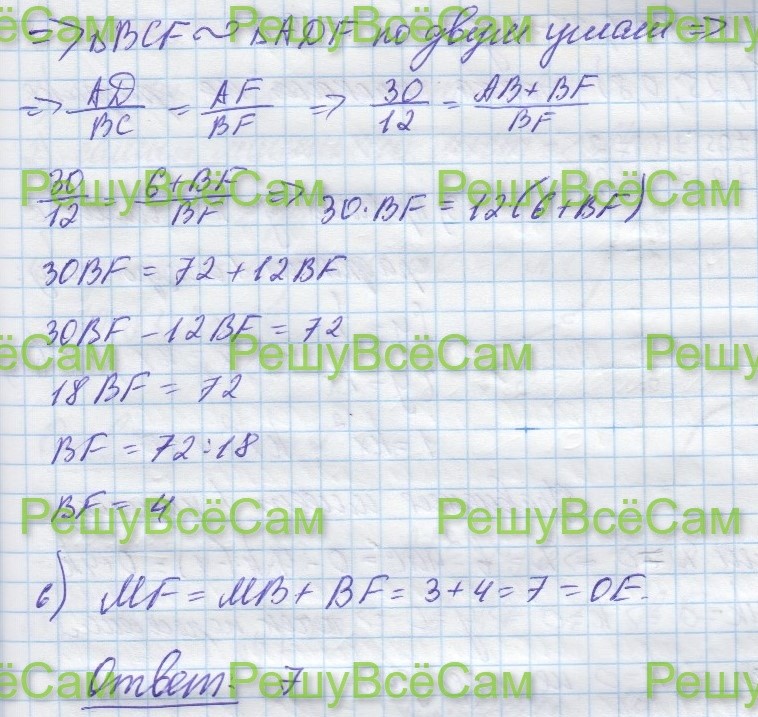 РешуВсёСам РешуВсёСам
=> ΔBCF ~ ΔADF по двум углам =>
=> AD/BC = AF/BF => 30/12 = AB+BF/BF
РешуВсёСам РешуВсёСам
30/12 = 6+BF/BF => 30·BF = 12(6+BF)
30BF = 72 + 12BF
30BF - 12BF = 72
РешуВсёСам РешуВсёСам РешуВсёСам
18BF = 72
BF = 72:18
BF = 4
РешуВсёСам РешуВсёСам
6) MF = MB + BF = 3+4 = 7 = OE.
Ответ. 7
РешуВсёСам РешуВсёСам РешуВсёСам